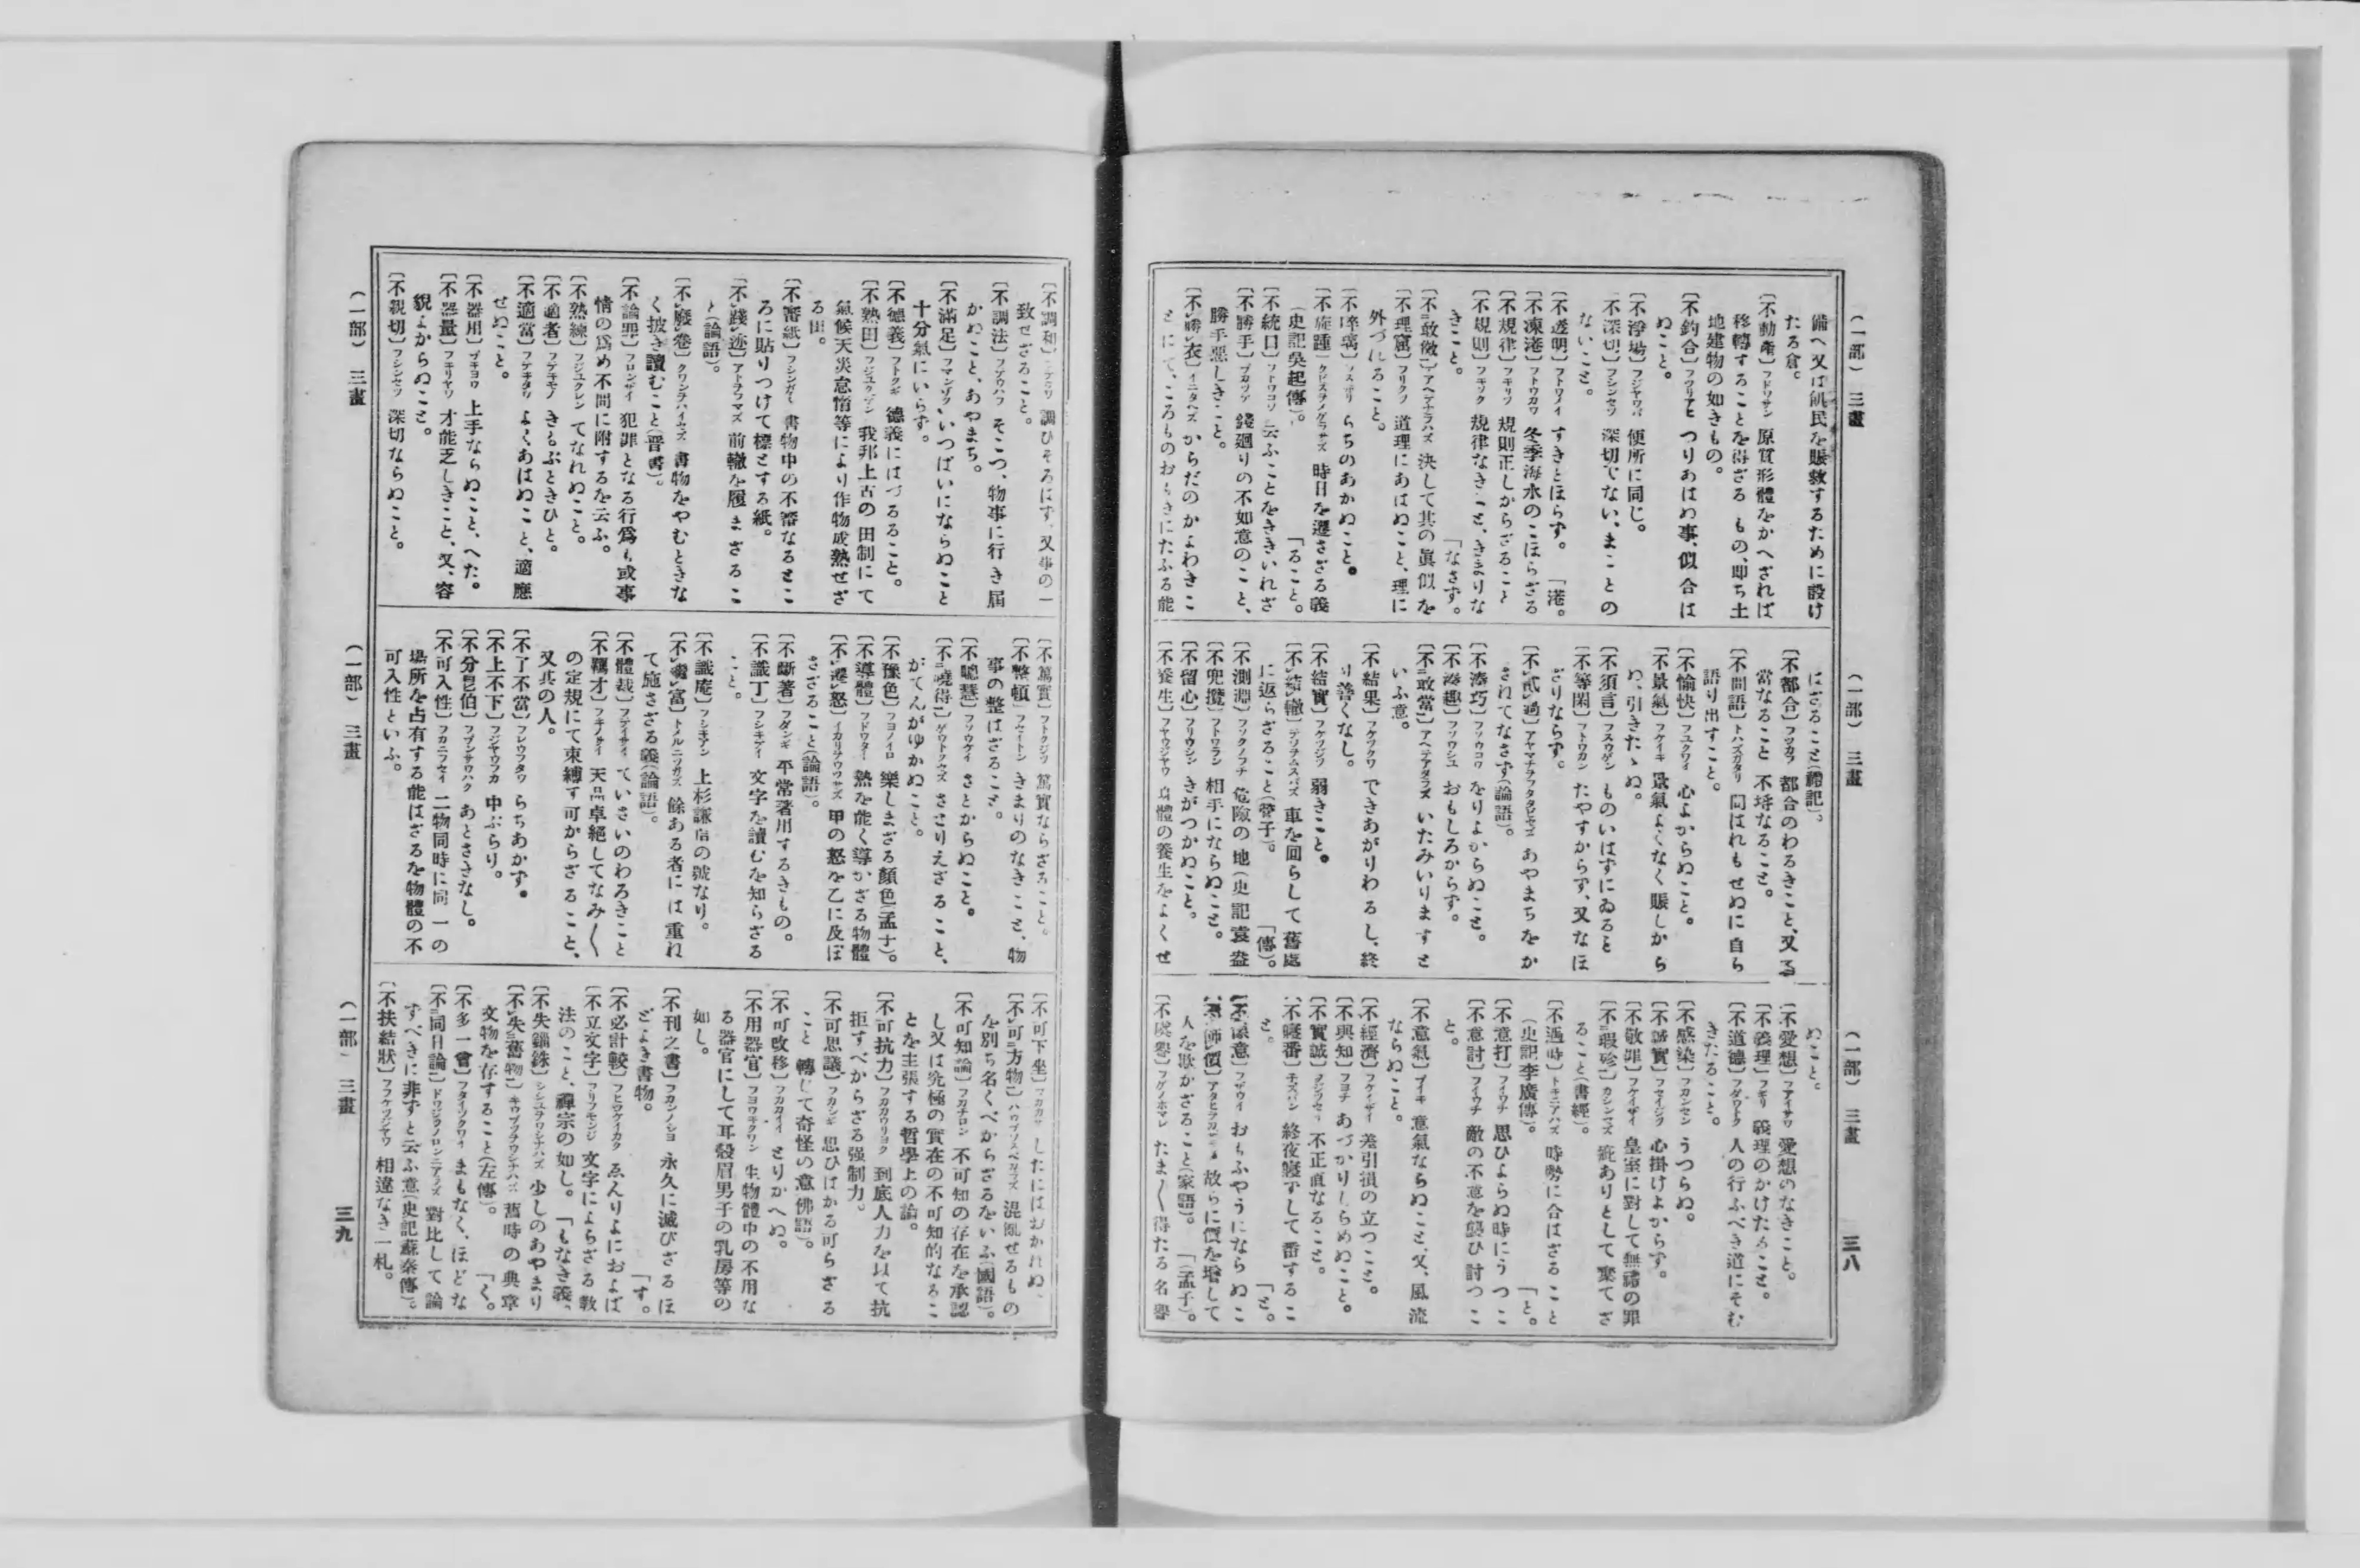 (一部) 三畫
備へ又は飢民を賑救するために設け
たる倉。
〔不動產〕フドウサン 原質形體をかへざれば
移轉することを得ざるもの、即ち土
地建物の如きもの。
〔不釣合〕フツリアヒ つりあはぬ事、似合は
ぬこと。
〔不淨場〕フジヤウバ 便所に同じ。
〔不深切〕フシンセツ 深切でない、まことの
ないこと。
〔不透明〕フトウメイ すきとほらず。 「港。
〔不凍港〕フトウカウ 冬季海水のこほらざる
〔不規律〕フキリツ 規則正しからざること
〔不規則〕フキソク 規律なきこと、きまりな
きこと。 「なさず。
〔不敢傚〕アヘテナラハズ 決して其の眞似を
〔不理窟〕フリクツ 道理にあはぬこと、理に
外づれること。
らちのあかぬこと。
〔不旋踵〕クビスヲメグラサズ 時日を遷さざる義
(史記吳起傳)。 「ること。
〔不統口〕 云ふことをききいれざ
〔不勝手〕フカツテ 錢廻りの不如意のこと、
勝手惡しきこと。
〔不勝衣〕イニタヘズ からだのかよわきこ
とにて、ころものおもきにたふる能
(一部) 三畫
はざること(禮記)。
〔不都合〕フツガフ 都合のわるきこと、又
當なること 不埒なること。
〔不問語〕トハズガタリ 問はれもせぬに自ら
語り出すこと。
〔不愉快〕フユクワイ 心よからぬこと。
〔不景氣〕フケイキ 景氣よくなく賑しから
ぬ、引きたゝぬ。
〔不須言〕フスウゲン ものいはずにゐると
〔不等閑〕フトウカン たやすからず、又なほ
ざりならず。
〔不貳過〕アヤマチヲフタタビセズ あやまちをか
さねてなさず(論語)。
〔不湊巧〕フソウコウ をりよからぬこと。
〔不湊趣〕フソウシユ おもしろからず。
〔不敢當〕アヘテアタラズ いたみいりますと
いふ意。
〔不結果〕フケツクワ できあがりわるし、終
り善くなし。
〔不結實〕フケツジツ 弱きこと。
〔不結轍〕テツヲムスバズ 車を回らして舊處
に返らざること(管子)。 「傳)。
〔不測淵〕フソクノフチ 危險の地(史記袁盎
〔不兜攬〕フトウラン 相手にならぬこと。
〔不留心〕フリウシン きがつかぬこと。
〔不養生〕フヤウジヤウ 身體の養生をよくせ
(一部) 三畫
ぬこと。
〔不愛想〕フアイサウ 愛想のなきこと。
〔不義理〕フギリ 義理のかけたること。
〔不道德〕フダウトク 人の行ふべき道にそむ
きたること。
〔不感染〕フカンセン うつらぬ。
〔不誠實〕フセイジツ 心掛けよからず。
〔不敬罪〕フケイザイ 皇室に對して無禮の罪
〔不瑕殄〕 疵ありとして棄てざ
ること(書經)。
〔不遇時〕トキニアハズ 時勢に合はざること
(史記李廣傳)。 「と。
〔不意打〕フイウチ 思ひよらぬ時にうつこ
〔不意討〕フイウチ 敵の不意を襲ひ討つこ
と。
〔不意氣〕ブイキ 意氣ならぬこと又、風流
ならぬこと。
〔不經濟〕フケイザイ 差引損の立つこと。
〔不與知〕フヨチ あづかりしらめぬこと。
〔不實誠〕フジツセイ 不正直なること。
〔不寢番〕ネズバン 終夜寢ずして番するこ
と。 「と。
おもふやうにならぬこ
〔不飾價〕アタヒヲカザラズ 故らに價を增して
人を欺かざること(家語)。 「(孟子)。
〔不虞譽〕フグノホマレ たま〳〵得たる名譽
三八
(一部) 三畫
〔不調和〕フテウワ 調ひそろはず、又事の一
致せざること。
〔不調法〕フテウハフ そこつ、物事に行き屆
かぬこと、あやまち。
〔不滿足〕フマンゾク いつぱいにならぬこと
十分氣にいらず。
〔不德義〕フトクギ 德義にはづるること。
〔不熟田〕フジユクデン 我邦上古の田制にて
氣候天災怠惰等により作物成熟せざ
る田。
〔不審紙〕フシンガミ 書物中の不審なるとこ
ろに貼りつけて標とする紙。
〔不踐迹〕アトヲフマズ 前轍を履まざるこ
と(論語)。
〔不廢卷〕クワンヲハイセズ 書物をやむときな
く披き讀むこと(晋書)。
〔不論罪〕フロンザイ 犯罪となる行爲も或事
情の爲め不問に附するを云ふ。
〔不熟練〕フジユクレン てなれぬこと。
〔不適者〕フテキシヤ きるぶときひと。
〔不適當〕フテキタウ よくあはぬこと、適應
せぬこと。
〔不器用〕ブキヨウ 上手ならぬこと、へた。
〔不器量〕フキリヤウ 才能乏しきこと、又、容
貌よからぬこと。
〔不親切〕フシンセツ 深切ならぬこと。
(一部) 三畫
〔不篤實〕フトクジツ 篤實ならざること。
〔不整頓〕フセイトン きまりのなきこと、物
事の整はざること。
〔不聰慧〕フソウケイ さとからぬこと。
〔不曉得〕ゲウトクセズ さとりえざること、
がてんがゆかぬこと。
〔不豫色〕フヨノイロ 樂しまざる顏色(孟子)。
〔不導體〕フドウタイ 熱を能く導かざる物體
〔不遷怒〕イカリヲウツサズ 甲の怒を乙に及ぼ
さざること(論語)。
〔不斷著〕フダンギ 平常著用するきもの。
〔不識丁〕フシキテイ 文字を讀むを知らざる
こと。
〔不識庵〕フシキアン 上杉謙信の號なり。
〔不繼富〕トメルニツガズ 餘ある者には重れ
て施さざる義(論語)。
〔不體裁〕フテイサイ ていさいのわろきこと
〔不羈才〕フキノサイ 天品卓絕してなみ〳〵
の定規にて束縛す可からざること、
又其の人。
〔不了不當〕フレウフタウ らちあかず。
〔不上不下〕フジヤウフカ 中ぶらり。
〔不分皀伯〕フブンサウハク あとさきなし。
〔不可入性〕フカニフセイ 二物同時に同一の
場所を占有する能はざるを物體の不
可入性といふ。
(一部) 三畫
〔不可下坐〕フカカザ したにはおかれぬ、
〔不可方物〕 混亂せるもの
を別ち名くべからざるをいふ(國語)。
〔不可知論〕フカチロン 不可知の存在を承認
し又は究極の實在の不可知的なるこ
とを主張する哲學上の論。
〔不可抗力〕フカカウリヨク 到底人力を以て抗
拒すべからざる强制力。
〔不可思議〕フカシギ 思ひはかる可らざる
こと 轉じて奇怪の意(佛語)。
〔不可改移〕フカカイイ とりかへぬ。
〔不用器官〕フヨウキクワン 生物體中の不用な
る器官にして耳殼眉男子の乳房等の
如し。
〔不刊之書〕フカンノシヨ 永久に滅びざるほ
どよき書物。 「す。
〔不必計較〕フヒツケイカク ゑんりよにおよば
〔不立文字〕フリフモンジ 文字によらざる敎
法のこと、禪宗の如し。 「もなき義、
〔不失錙銖〕シシユヲウシナハズ 少しのあやまり
〔不失舊物〕キウブツヲウシナハズ 舊時の典章
文物を存すること(左傳)。 「く。
〔不多一會〕フタイツクワイ まもなく、ほどな
〔不同日論〕ドウジツノロンニアラズ 對比して論
すべきに非ずと云ふ意(史記蘇秦傳)。
〔不扶結狀〕フフケツジヤウ 相違なき一札。
三九